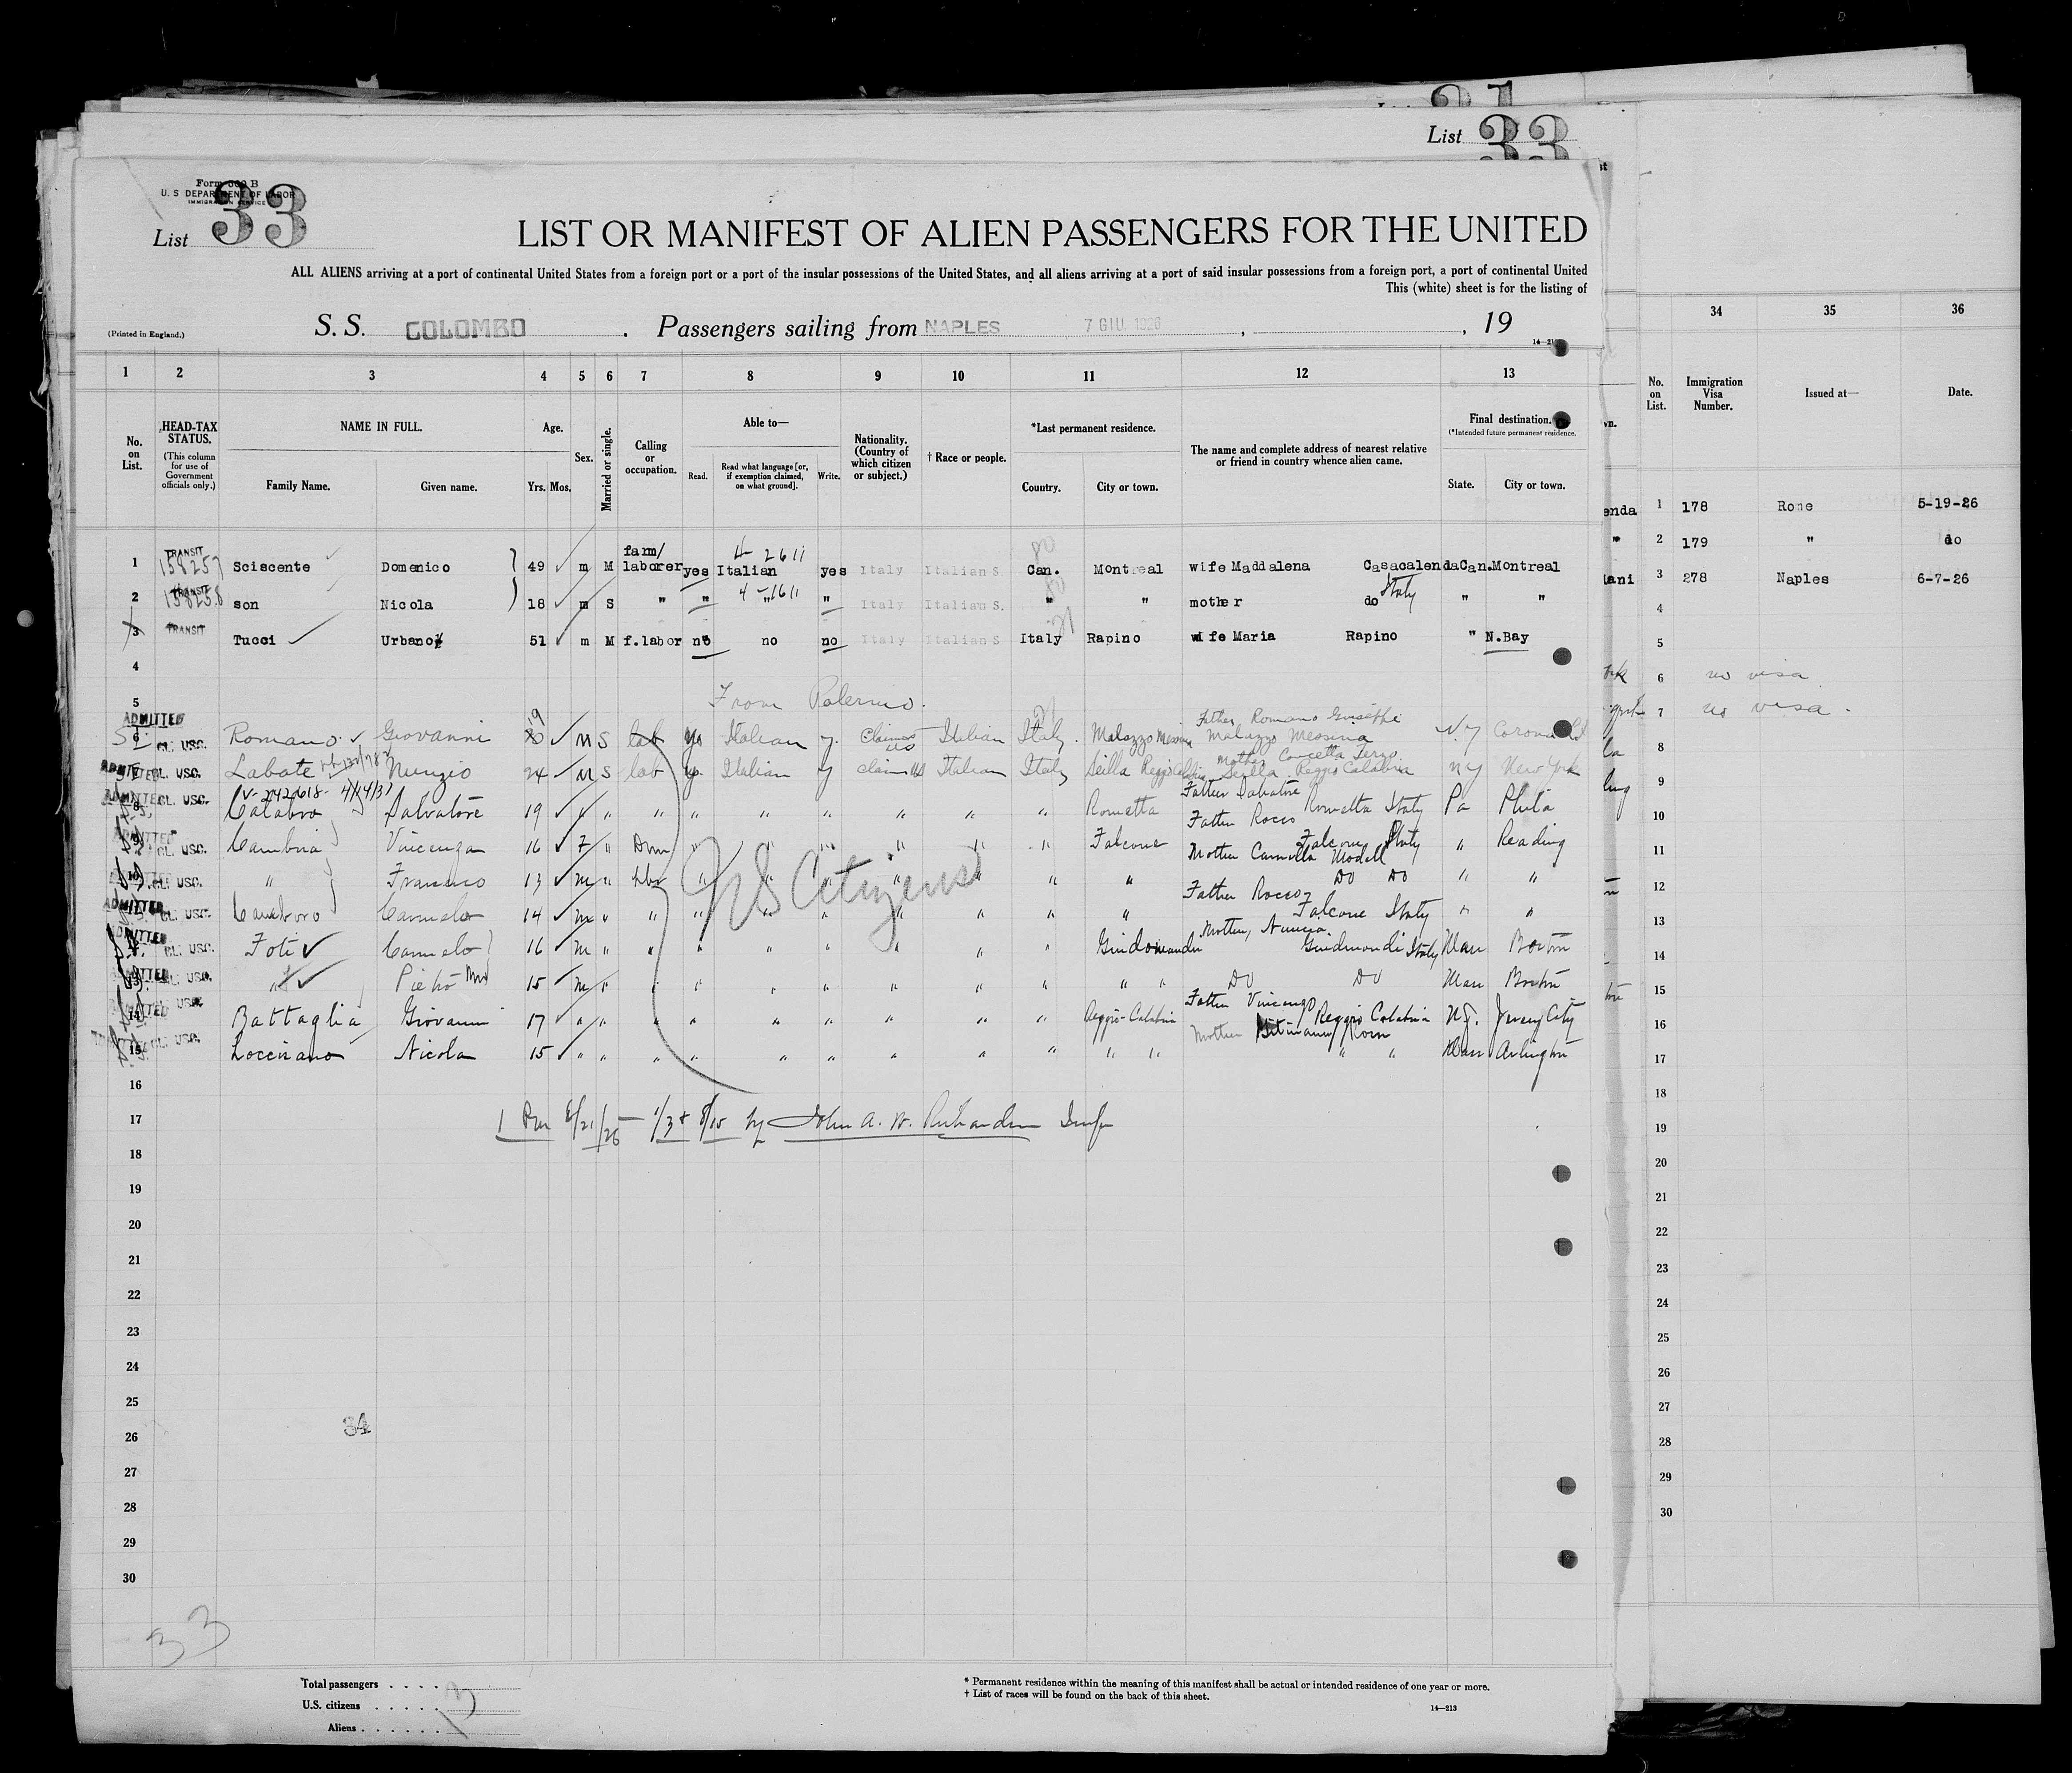 List 33
33
Form 500 B
U. S DEPARTMENT OF LABOR
IMMIGRATION SERVICE
List
LIST OR MANIFEST OF ALIEN PASSENGERS FOR THE UNITED
ALL ALIENS arriving at a port of continental United States from a foreign port or a port of the insular possessions of the United States, and all aliens arriving at a port of said insular possessions from a foreign port, a port of continental United
This (white) sheet is for the listing of
(Printed in England.) S. S. COLOMBO . Passengers sailing from NAPLES 7 GIU. 1926 , , 19
1 2 3 4 5 6 7 8 9 10 11 12 13 34 35 36
No. on List.
HEAD-TAX STATUS. (This column for use of Government officials only.)
NAME IN FULL. Family Name. Given name.
Age. Yrs. Mos.
Sex.
Married or single.
Calling or occupation.
Able to— Read. Read what language [or, if exemption claimed, on what ground]. Write.
Nationality. (Country of which citizen or subject.)
† Race or people.
*Last permanent residence. Country. City or town.
The name and complete address of nearest relative or friend in country whence alien came.
Final destination. (*Intended future permanent residence. State. City or town.
No. on List. Immigration Visa Number. Issued at— Date.
1 TRANSIT 158257 Sciscente Domenico 49 m M farm/ laborer yes Italian yes Italy Italian S. Can. Montreal wife Maddalena Casacalenda Can. Montreal
4-2611
2 TRANSIT 158258 son Nicola 18 m S " " " " Italy Italian S. " " mother do Italy " "
4-1611
3 TRANSIT Tucci Urbano 51 m M f.labor no no no Italy Italian S Italy Rapino wife Maria Rapino " N.Bay
4
5 From Palermo.
6 ADMITTED CL. USC. Romano Giovanni 19 M S lab yes Italian y. Claims US Italian Italy. Malazzo Messina Father Romano Giuseppe Malazzo Messina N.Y Corona
7 ADMITTED CL. USC. Labate Nunzio 24 M S lab y. Italian y claims US Italian Italy Scilla Reggio Calabria Mother Concetta Scilla Reggio Calabria NY New York
8 ADMITTED CL. USC. Calabro Salvatore 19 " " " " " " " " " Rometta Father Salvatore Rometta Italy Pa Phila
9 ADMITTED CL. USC. Cambria Vincenza 16 F " Dom " " " " " " Falcone Father Rocco Falcone Italy " Reading
10 CL. USC. " Francisco 13 m " Lbr " " " " " " " Mother Carmella Do Do " "
11 ADMITTED CL. USC. Carmelo 14 m " " " " " " " " " Father Rocco Falcone Italy " "
12 ADMITTED CL. USC. Foti Carmelo 16 m " " " " " " " " Mother, Nunzia Italy Mass Boston
13 ADMITTED CL. USC. " Pietro 15 m " " " " " " " " " " Do Do Mass Boston
14 CL. USC. Battaglia Giovanni 17 " " " " " " " " " Reggio-Calabria Father Vincenzo Reggio Calabria N.J. Jersey City
15 CL. USC. Nicola 15 " " " " " " " " " " " Mother " " Mass Arlington
US Citizens
16
17 John A. W. Richardson Insp
18
19
20
21
22
23
24
25
34
26
27
28
29
30
33
Total passengers . . . .
U.S. citizens . . . . .
Aliens . . . . . .
13
* Permanent residence within the meaning of this manifest shall be actual or intended residence of one year or more.
† List of races will be found on the back of this sheet.
14—213
1 178 Rome 5-19-26
2 179 " do
3 278 Naples 6-7-26
4
5
6 no visa
7 no visa.
8
9
10
11
12
13
14
15
16
17
18
19
20
21
22
23
24
25
26
27
28
29
30